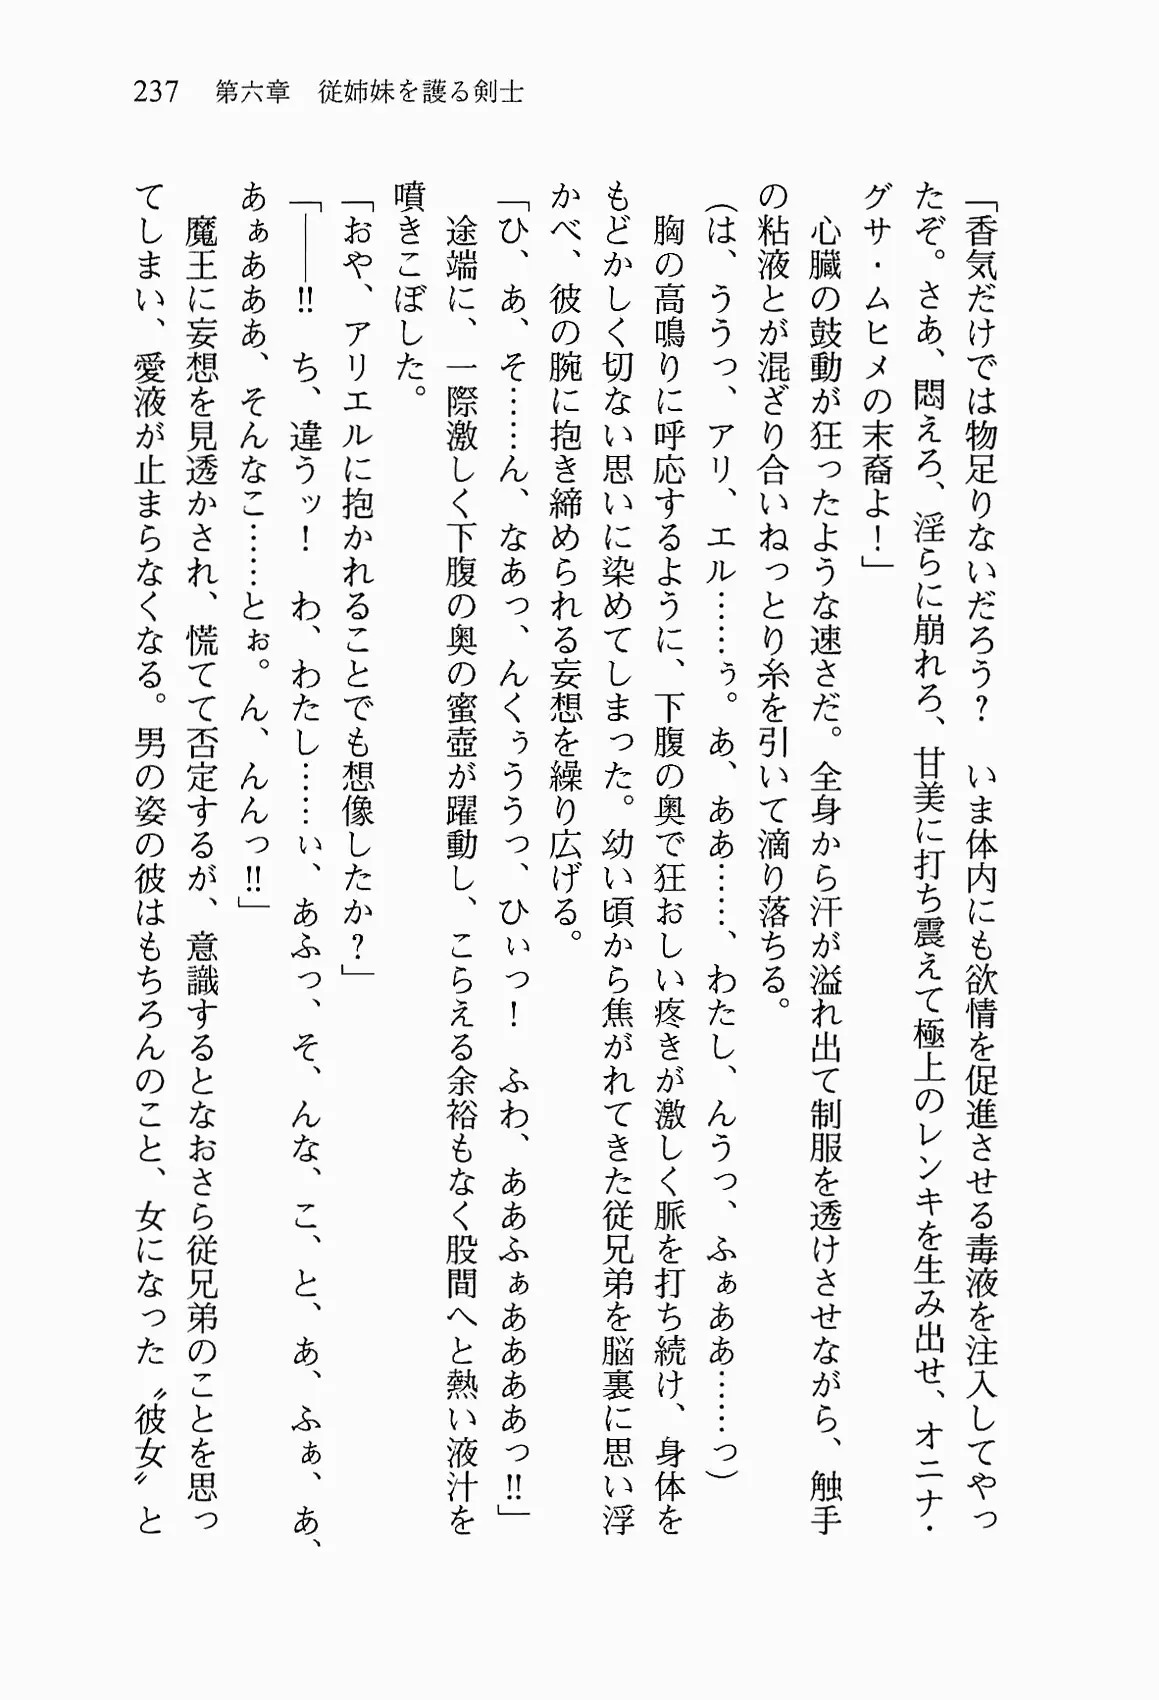 237 第六章 従姉妹を護る剣士
「香気だけでは物足りないだろう？ いま体内にも欲情を促進させる毒液を注入してやっ
たぞ。さあ、悶えろ、淫らに崩れろ、甘美に打ち震えて極上のレンキを生み出せ、オニナ・
グサ・ムヒメの末裔よ！」
心臓の鼓動が狂ったような速さだ。全身から汗が溢れ出て制服を透けさせながら、触手
の粘液とが混ざり合いねっとり糸を引いて滴り落ちる。
（は、ううっ、アリ、エル……ぅ。あ、ああ……、わたし、んうっ、ふぁああ……っ）
胸の高鳴りに呼応するように、下腹の奥で狂おしい疼きが激しく脈を打ち続け、身体を
もどかしく切ない思いに染めてしまった。幼い頃から焦がれてきた従兄弟を脳裏に思い浮
かべ、彼の腕に抱き締められる妄想を繰り広げる。
「ひ、あ、そ……ん、なあっ、んくぅううっ、ひぃっ！ ふわ、ああふぁああああっ!!」
途端に、一際激しく下腹の奥の蜜壺が躍動し、こらえる余裕もなく股間へと熱い液汁を
噴きこぼした。
「おや、アリエルに抱かれることでも想像したか？」
「――!! ち、違うッ！ わ、わたし……ぃ、あふっ、そ、んな、こ、と、あ、ふぁ、あ、
あぁあああ、そんなこ……とぉ。ん、んんっ!!」
魔王に妄想を見透かされ、慌てて否定するが、意識するとなおさら従兄弟のことを思っ
てしまい、愛液が止まらなくなる。男の姿の彼はもちろんのこと、女になった〝彼女〟と